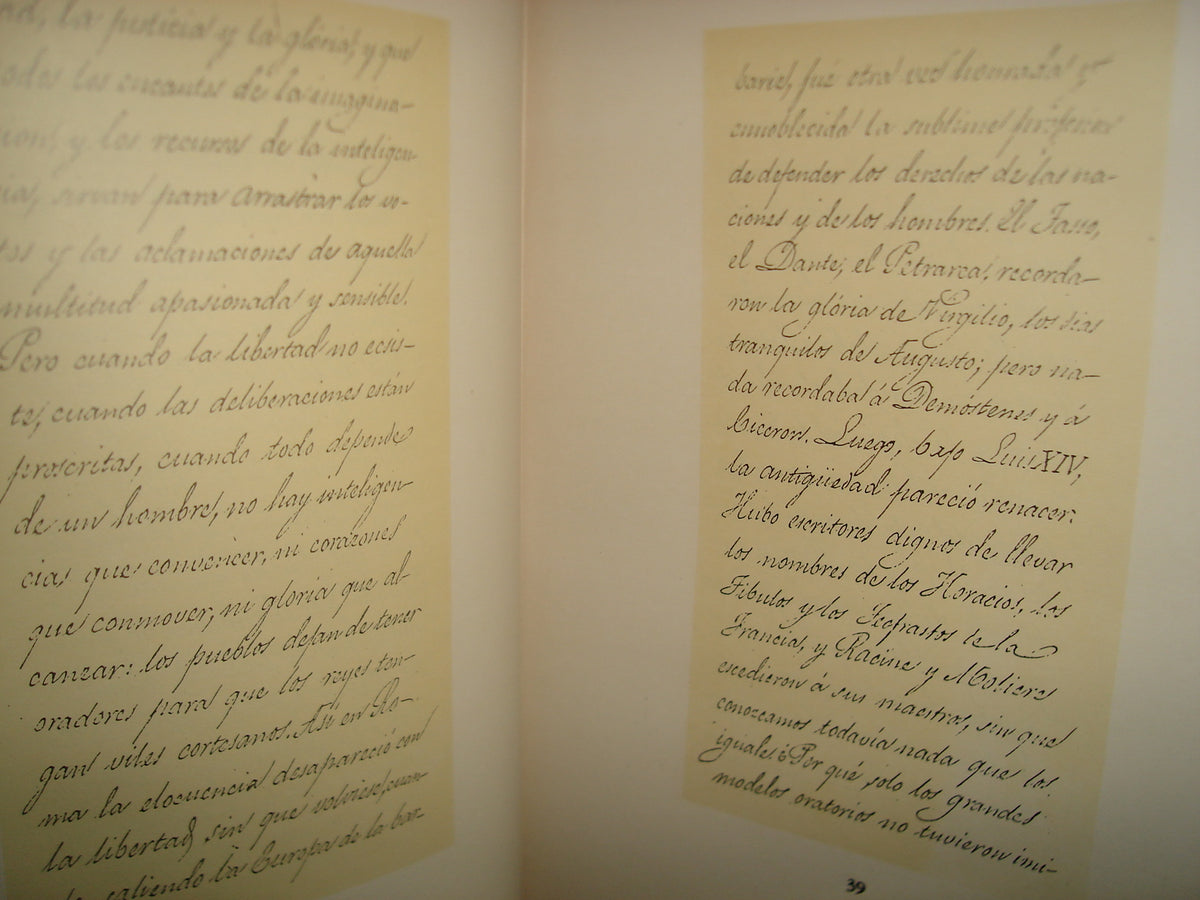 la justicia y la glória, y que
todos los encantos de la imagina-
cion, y los recursos de la inteligen-
cia, sirvan para arrastrar los vo-
tos y las aclamaciones de aquella
multitud apasionada y sensible.
Pero cuando la libertad no ecsis-
te, cuando las deliberaciones están
proscritas, cuando todo depende
de un hombre, no hay inteligen-
cias que convencer, ni corazones
que conmover, ni glória que al-
canzar: los pueblos dejan de tener
oradores para que los reyes ten-
gan viles cortesanos. Asi en Ro-
ma la elocuencia desapareció con
la libertad, sin que volviese, cuan-
do saliendo la Europa de la bar-
barie, fué otra vez honrada y
ennoblecida la sublime profesion
de defender los derechos de las na-
ciones y de los hombres. El Tasso,
el Dante, el Petrarca, recorda-
ron la glória de Virgilio, los dias
tranquilos de Augusto; pero na-
da recordaba á Demóstenes y á
Ciceron. Luego, bajo Luis XIV,
la antigüedad pareció renacer.
Hubo escritores dignos de llevar
los nombres de los Horacios, los
Tibulos y los Teofrastos de la
Francia, y Racine y Moliere
escedieron á sus maestros, sin que
conozcamos todavía nada que los
iguale. ¿Por qué, solo los grandes
modelos oratorios no tuvieron imi-
39